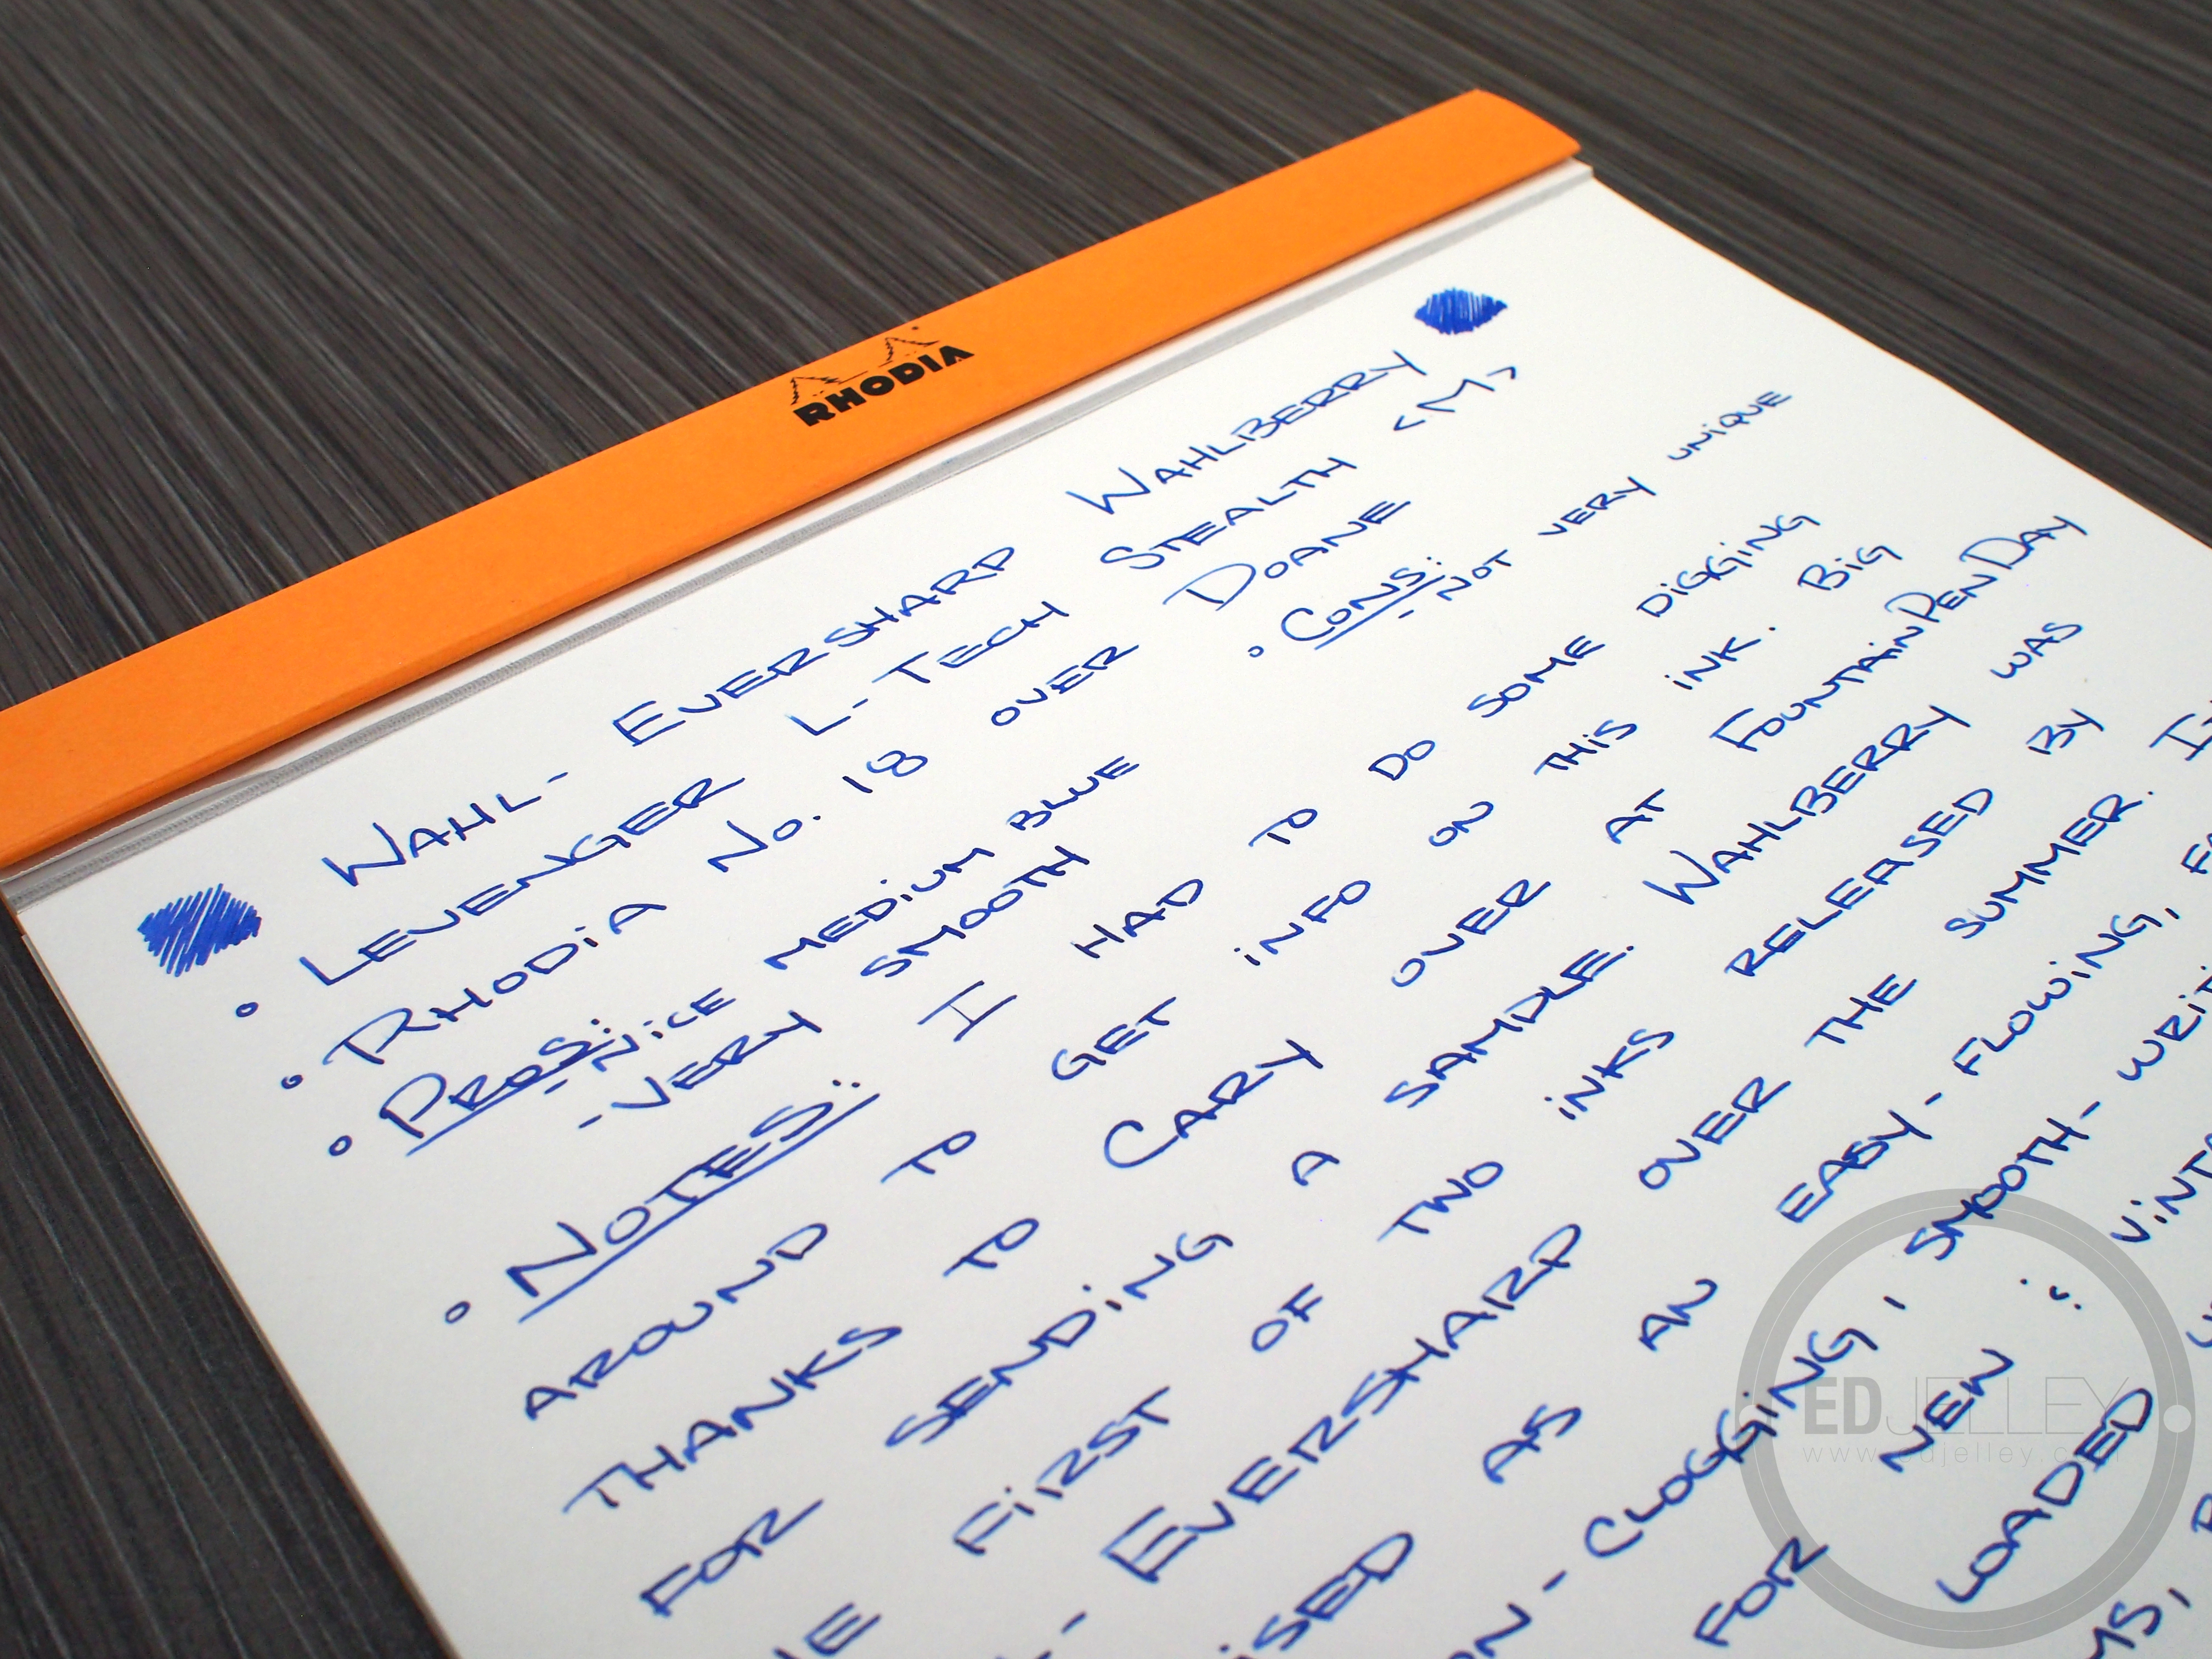 RHODIA
WAHL-EVERSHARP WAHLBERRY
• LEVENGER L-TECH STEALTH <M>
• RHODIA No. 18 OVER DOANE
• PROS: • CONS:
- NICE MEDIUM BLUE - NOT VERY UNIQUE
- VERY SMOOTH
• NOTES: I HAD TO DO SOME DIGGING
AROUND TO GET INFO ON THIS INK. BIG
THANKS TO CARY OVER AT FOUNTAIN PEN DAY
FOR SENDING A SAMPLE. WAHLBERRY WAS
FIRST OF TWO INKS RELEASED BY
- EVERSHARP OVER THE SUMMER.
AS AN EASY-FLOWING,
-CLOGGING, SMOOTH-
FOR NEW
LOADED
EDJELLEY
www.edjelley.com